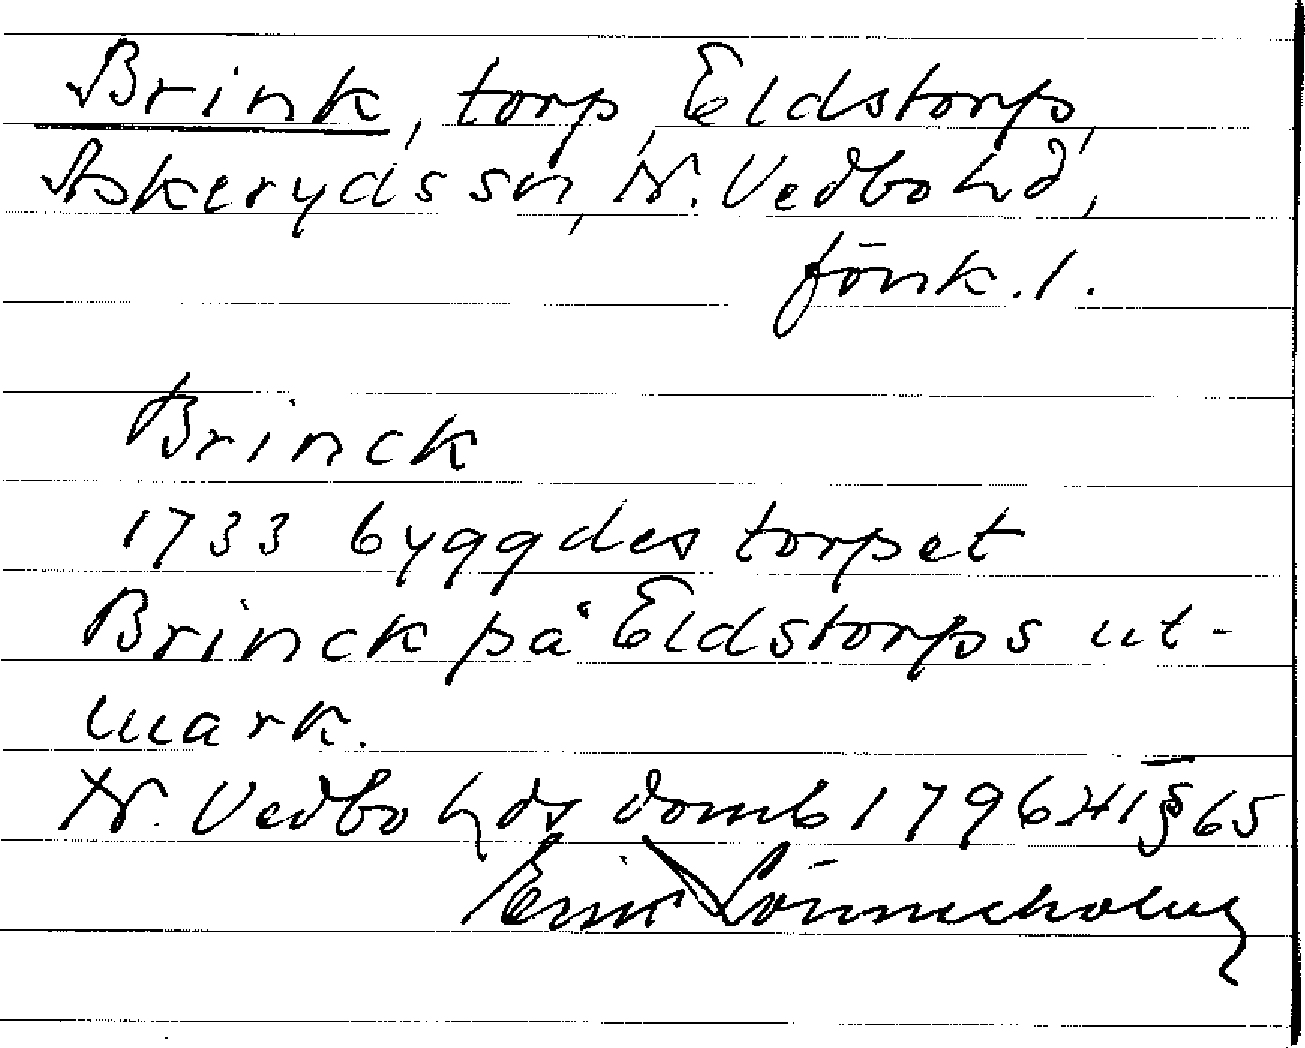 Brink, torp, Eldstorp,
Askeryds sn, N. Vedbo hd,
Jönk. l.
Brinck
1733 byggdes torpet
Brinck på Eldstorps ut-
mark.
N. Vedbo hds domb 1796 H I § 65
Erik Lönnerholm